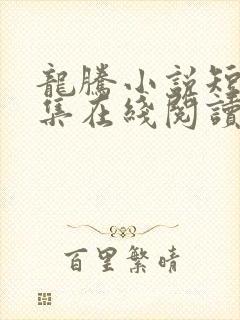 龍騰小説短
集在綫閱讀
百里繁晴